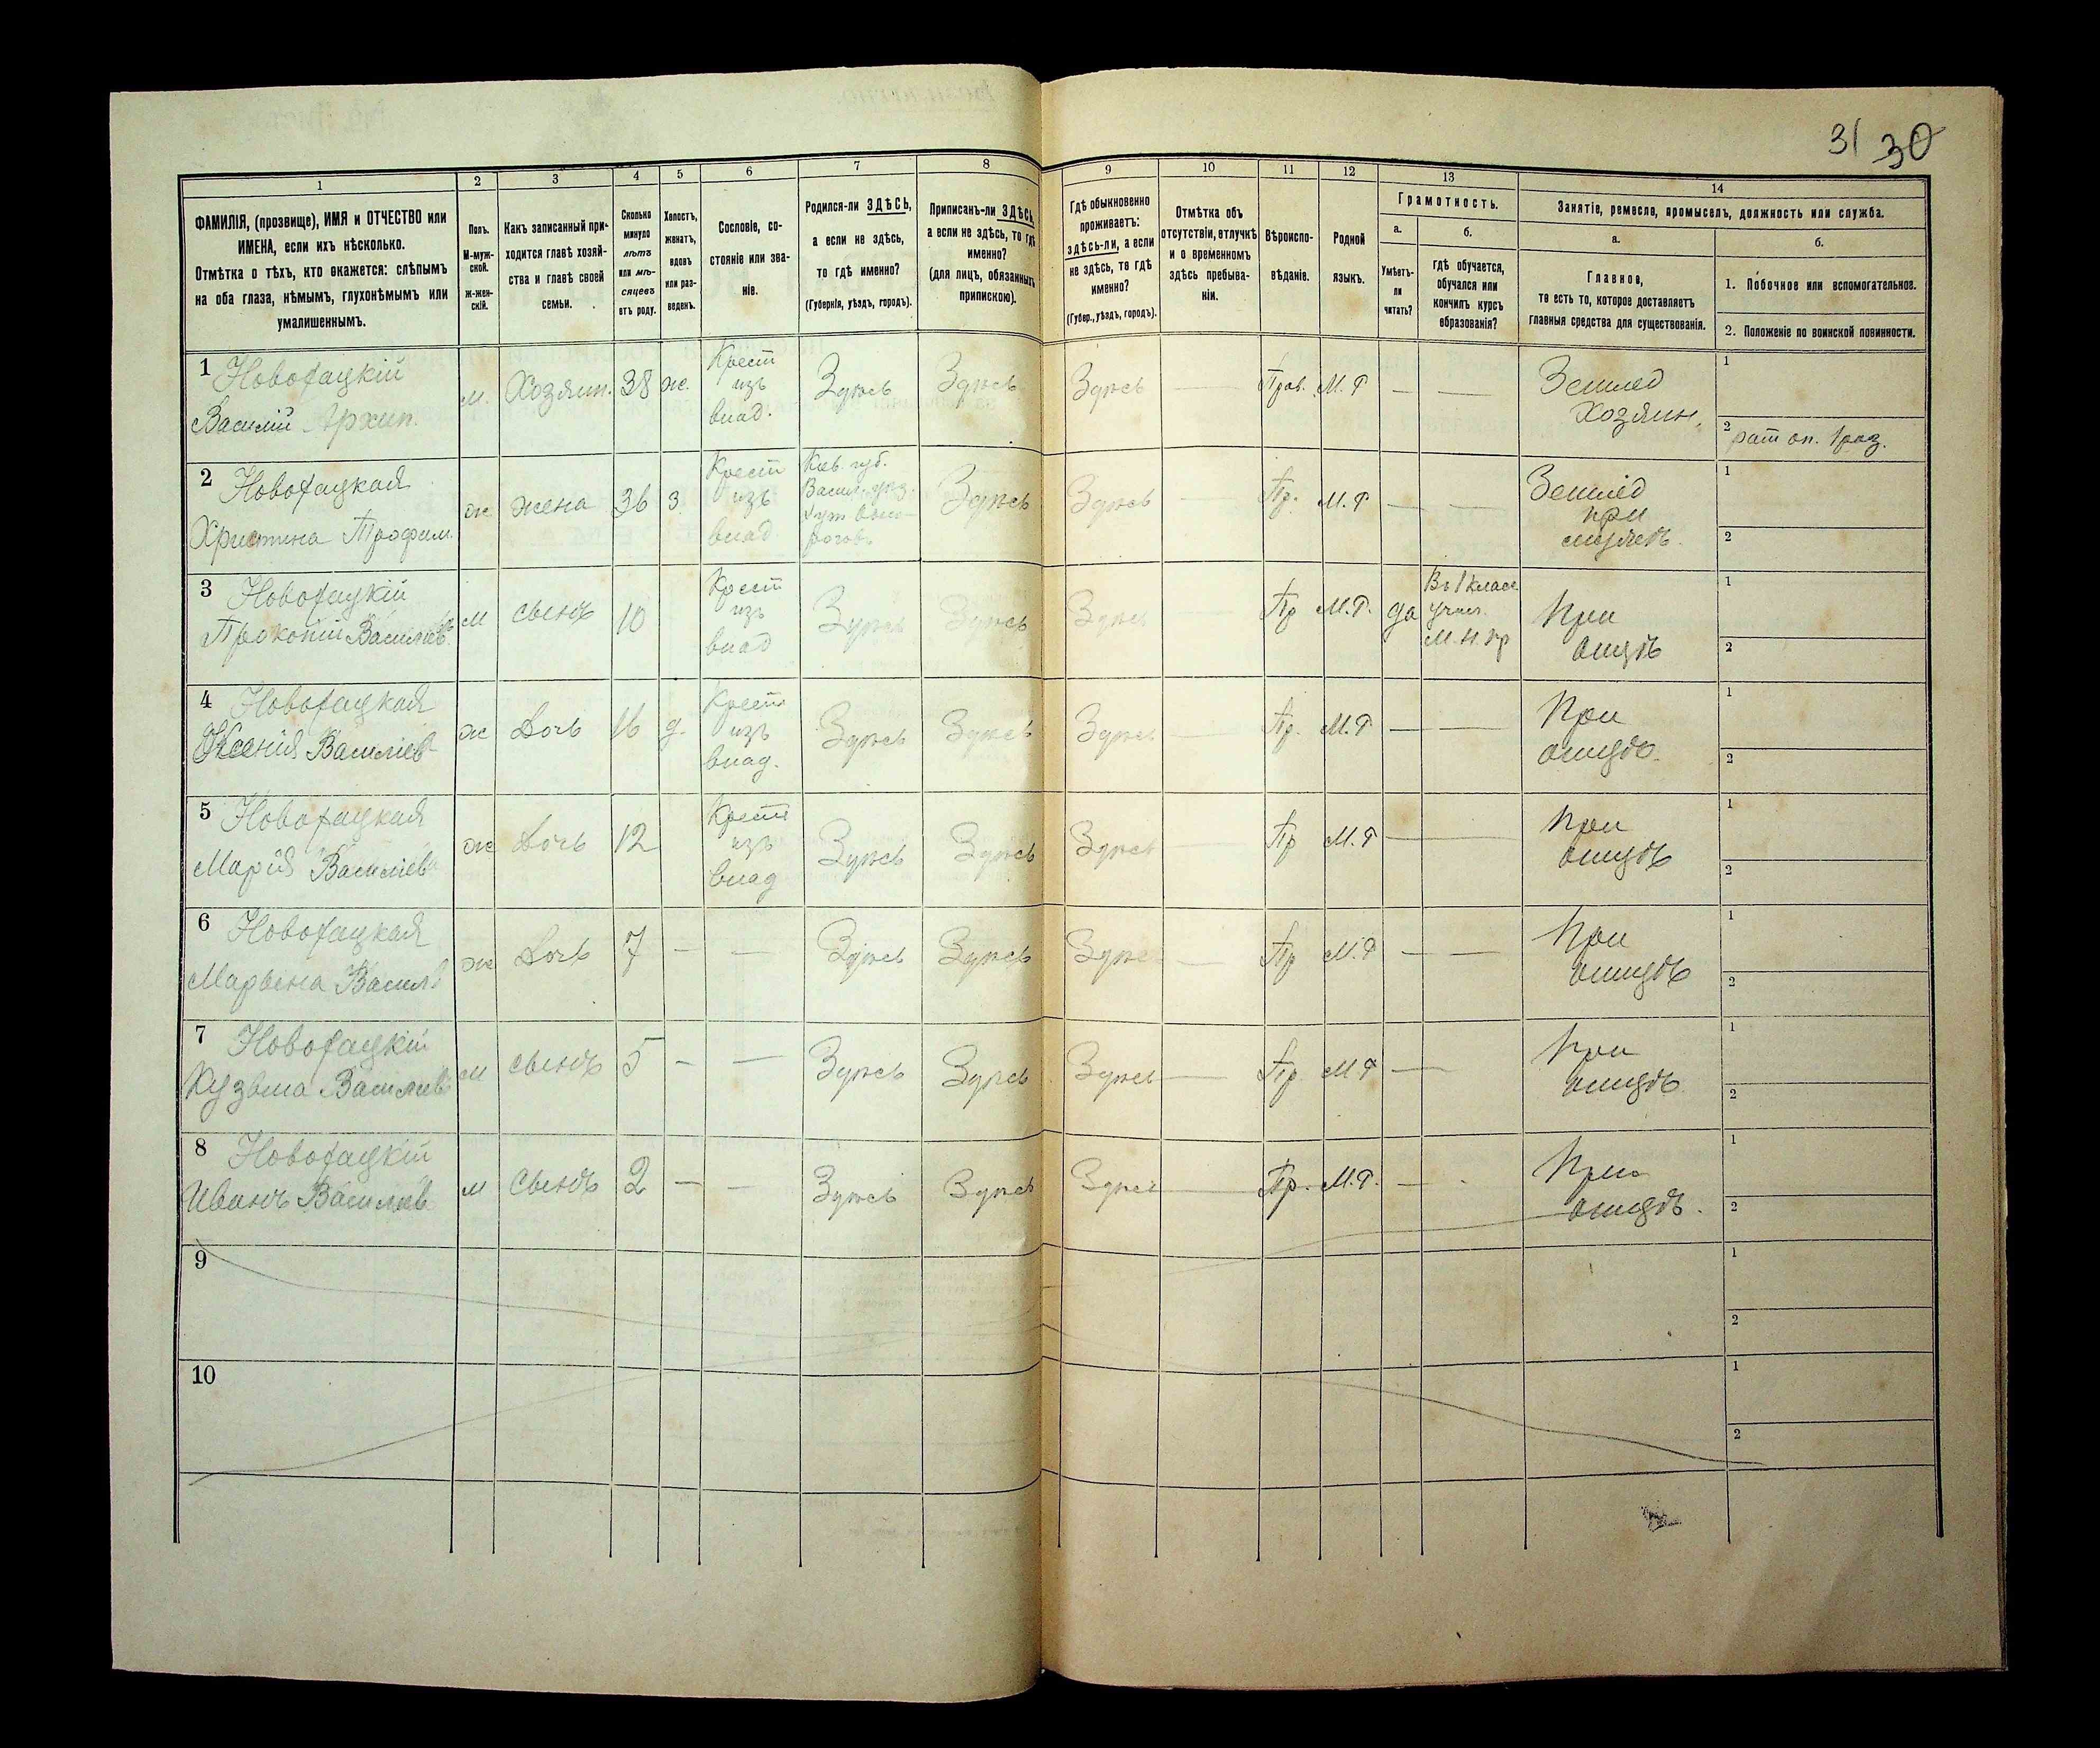 31 30
1 2 3 4 5 6 7 8 9 10 11 12 13 14
ФАМИЛІЯ, (прозвище), ИМЯ и ОТЧЕСТВО или
ИМЕНА, если ихъ нѣсколько.
Отмѣтка о тѣхъ, кто окажется: слѣпымъ
на оба глаза, нѣмымъ, глухонѣмымъ или
умалишеннымъ.
Полъ.
М-муж-
ской.
ж-жен-
скій.
Какъ записанный при-
ходится главѣ хозяй-
ства и главѣ своей
семьи.
Сколько
минуло
лѣтъ
или мѣ-
сяцевъ
отъ роду.
Холостъ,
женатъ,
вдовъ
или раз-
веденъ.
Сословіе, со-
стояніе или зва-
ніе.
Родился-ли ЗДѢСЬ,
а если не здѣсь,
то гдѣ именно?
(Губернія, уѣздъ, городъ).
Приписанъ-ли ЗДѢСЬ,
а если не здѣсь, то гдѣ
именно?
(для лицъ, обязанныхъ
припискою).
Гдѣ обыкновенно
проживаетъ:
здѣсь-ли, а если
не здѣсь, то гдѣ
именно?
(Губер., уѣздъ, городъ).
Отмѣтка объ
отсутствіи, отлучкѣ
и о временномъ
здѣсь пребыва-
ніи.
Вѣроиспо-
вѣданіе.
Родной
языкъ.
Грамотность.
а.
Умѣетъ-
ли
читать?
б.
гдѣ обучается,
обучался или
кончилъ курсъ
образованія?
Занятіе, ремесло, промыселъ, должность или служба.
а.
Главное,
то есть то, которое доставляетъ
главныя средства для существованія.
б.
1. Побочное или вспомогательное.
2. Положеніе по воинской повинности.
1
Василій Архип.
м. Хозяин. 38 ж.
Крест
изъ
влад.
Здѣсь Здѣсь Здѣсь — Прав. М. Р — —
Землед
Хозяин.
1
2 рат оп. 1 раз.
2
Христина Трофим.
ж жена 36 з
Крест
изъ
влад
Кіев. губ.
Васил. уѣз.
Здѣсь Здѣсь — Пр. М. Р — —
Землед
при
1
2
3
Прокопій Васильев.
м сынъ 10
Крест
изъ
влад
Здѣсь Здѣсь Здѣсь — Пр М. Р. да
Въ 1 класс
учил.
М. Н. Пр
При
отцѣ
1
2
4
Ксенія Василіев
ж Дочь 16 д.
Крест
изъ
влад.
Здѣсь Здѣсь Здѣсь — Пр. М. Р — —
При
отцѣ.
1
2
5
Марія Василіев
ж Дочь 12
Крест
изъ
влад
Здѣсь Здѣсь Здѣсь — Пр М. Р —
При
отцѣ
1
2
6
Марьена Васил
ж Дочь 7 — — Здѣсь Здѣсь Здѣсь — Пр М. Р — —
При
отцѣ
1
2
7
Кузьма Василіев
м сынъ 5 — — Здѣсь Здѣсь Здѣсь — Пр М Р —
При
отцѣ
1
2
8
Иванъ Василіев
м Сынъ 2 — — Здѣсь Здѣсь Здѣсь — Пр. М. Р. —
При
отцѣ.
1
2
9
1
2
10
1
2